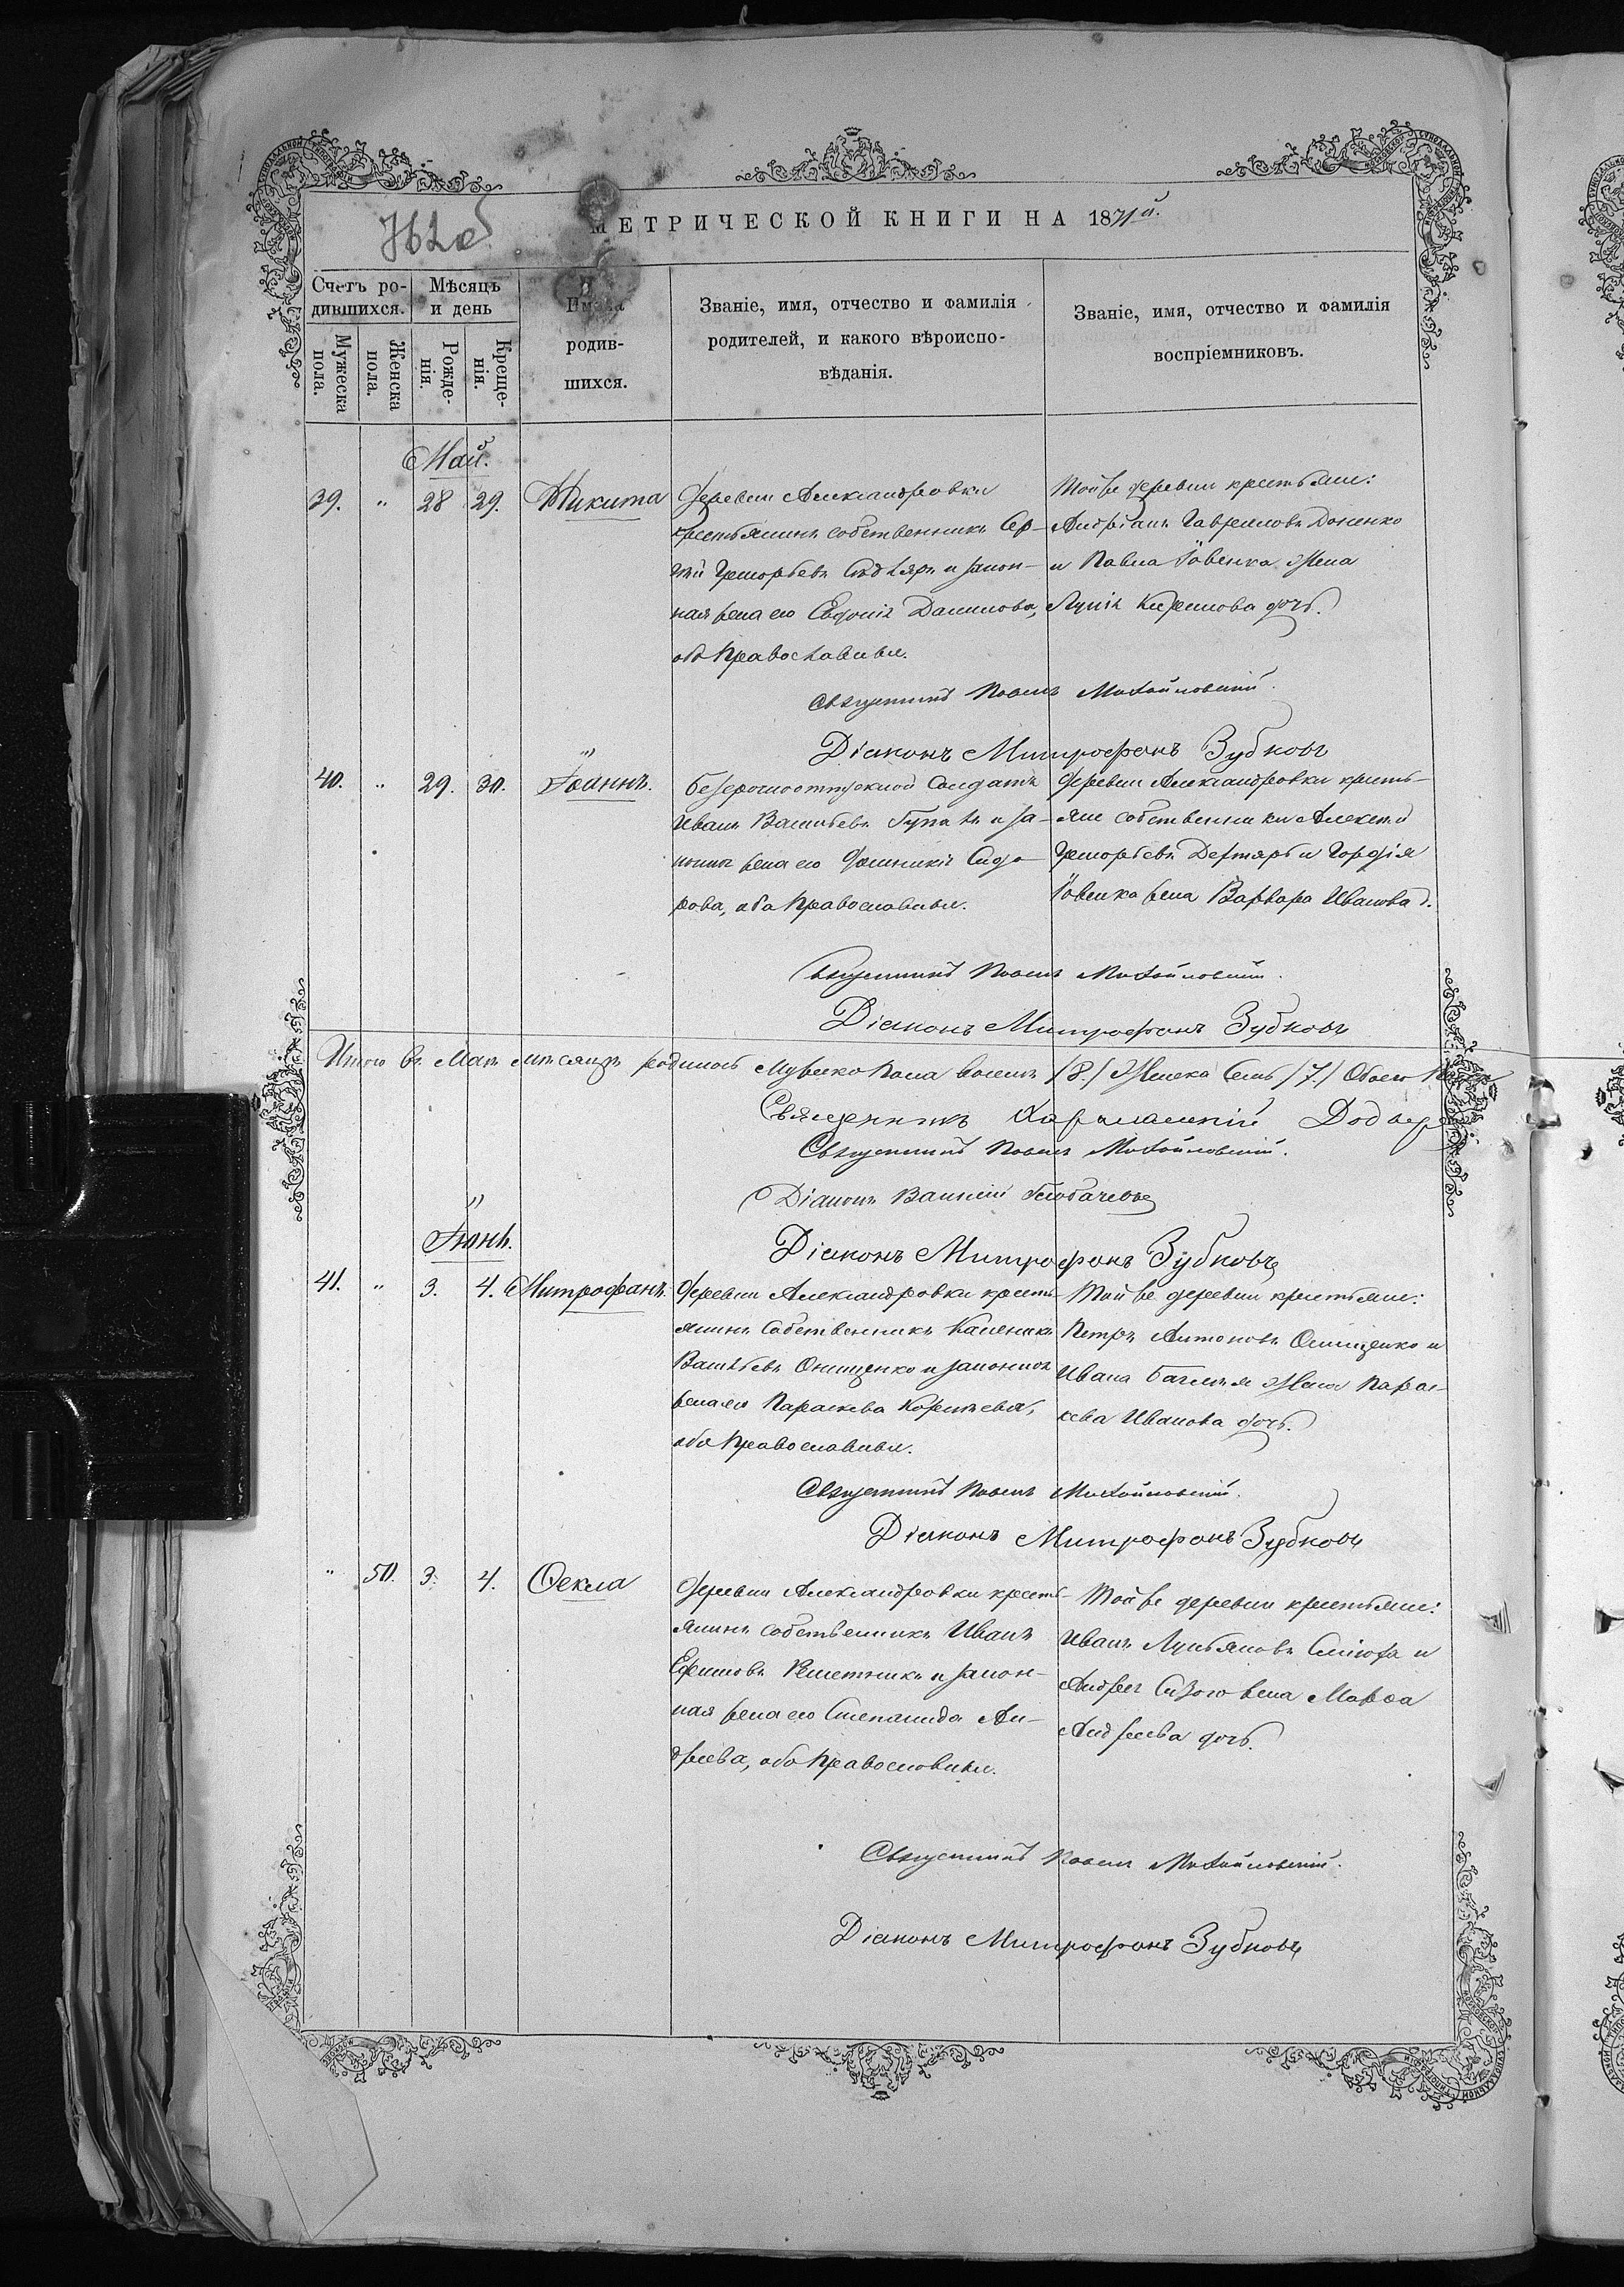 762об
МЕТРИЧЕСКОЙ КНИГИ НА 1871й.
Счетъ родившихся.
Мѣсяцъ и день
Имена родившихся.
Званіе, имя, отчество и фамилія родителей, и какого вѣроисповѣданія.
Званіе, имя, отчество и фамилія воспріемниковъ.
Мужеска пола.
Женска пола.
Рожденія.
Крещенія.
Май.
39. " 28 29. Никита
деревни Александровки
крестьянинъ собственникъ Сер-
гѣй Григорьевъ и закон-
ная жена его Евдокія Данилова,
оба православные.
Той же деревни крестьяне:
Андріанъ Гавриловъ Доненко
и Павла Іовенка жена
дочь.
Священникъ Павелъ Михайловскій.
Діаконъ Митрофанъ Зубковъ
40. " 29. 30. Іоаннъ.
безсрочноотпускной солдатъ
Иванъ Васильевъ и за-
конная жена его Домникія Сидо-
рова, оба православные.
деревни Александровки кресть-
яне собственники Алексѣй
Григорьевъ Дегтярь и Гордія
Іовенка жена Варвара Иванова д.
Священникъ Павелъ Михайловскій.
Діаконъ Митрофанъ Зубковъ
Итого въ Маѣ мѣсяцѣ родилось Мужеско пола восемь /8./ Женска семь /7./ Обоего
Священникъ
Священникъ Павелъ Михайловскій.
Діаконъ Василій
Діаконъ Митрофанъ Зубковъ
Іюнь.
41. " 3. 4. Митрофанъ.
деревни Александровки кресть-
янинъ собственникъ Каленикъ
Васильевъ Онищенко и законная
жена его Параскева Корнеева,
оба православные.
Той же деревни крестьяне:
Петръ Антоновъ Онищенко и
Ивана жена Парас-
кева Иванова дочь.
Священникъ Павелъ Михайловскій.
Діаконъ Митрофанъ Зубковъ
" 50. 3. 4. Ѳекла
деревни Александровки кресть-
янинъ собственникъ Иванъ
Ефимовъ Решетникъ и закон-
ная жена его Степанида Ан-
дреева, оба православные.
Той же деревни крестьяне:
Иванъ Лукьяновъ и
Андрея жена Марѳа
Андреева дочь.
Священникъ Павелъ Михайловскій.
Діаконъ Митрофанъ Зубковъ